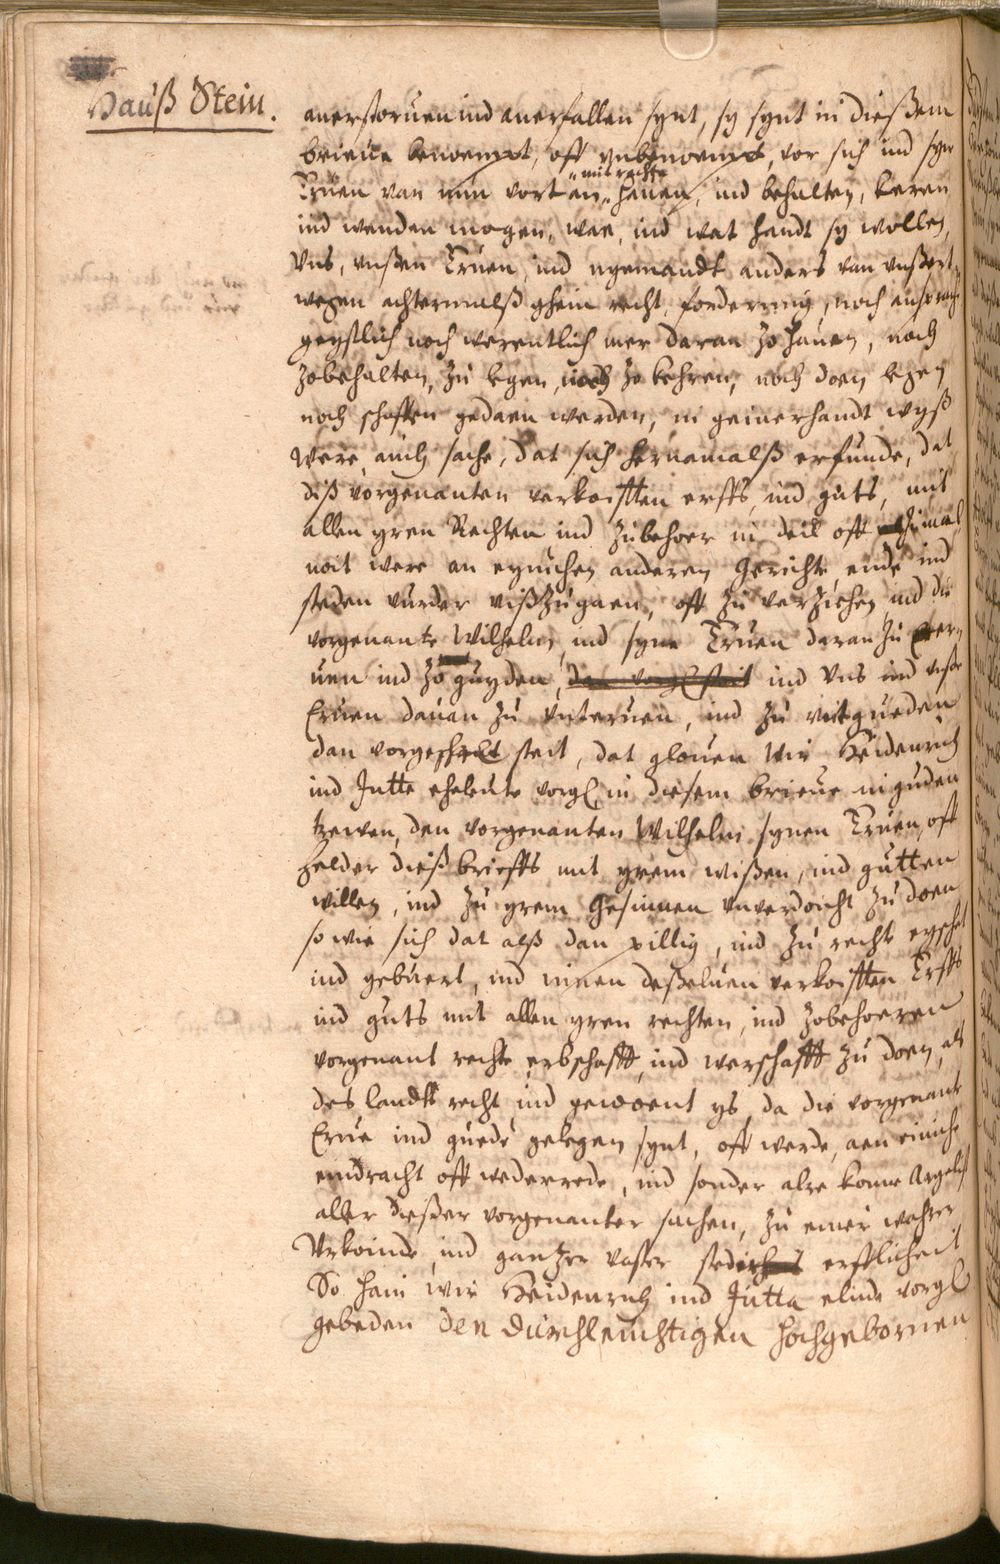 Hauß Stein.
anerstoruen ind anerfallen synt, sy synt in dießem
brieue benoempt, oft vnbenoempt, vor sich ind syn
Eruen van nun vort an mit rechte hauen, ind behalten, keren
ind wenden mogen, war, ind wat handt sy wollen,
Vns, vnßen Eruen, ind nyemandt anders van vnßert
wegen achtermalß ghein recht, forderung, noch ansprach
geystlich noch werentlich mer daran zo hauen, noch
zobehalten, zu legen, noch zo kehren, noch doen legen
noch schaffen gedaen werden, in geinerhandt wyß
Were auch sache, dat sich hernamalß erfunde, dat
diß vorgenanten verkoifften erffs, ind guts, mit
allen yren Rechten ind zubehoer in deil oft zumal
noit were an eynichen anderen Gerichte, ende ind
steden vurder vißzugaen, oft zu verziehen, ind die
vorgenante Wilhelm, ind syne Eruen daran zu eruen
uen ind zo guyden, dan vorgß steit ind Vns ind vnße
Eruen dauan zu enteruen, ind zu vntgueden
dan vorgeschrt steit, dat glouen Wir Heidenrich
ind Jutte eheleute vorgß in diesem brieue in guden
trewen, den vorgenanten Wilhelm synen Eruen, oft
helder dieß brieffs mit yrem wißen, ind gutten
willen, ind zu yrem Gesinnen vnverdoicht zu doen
so wie sich dat alß dan billig, ind zu recht eyschet
ind gebuert, ind innen deßeluen verkoifften Erffs
ind guts mit allen yren rechten, ind zobehoeren
vorgenant rechte erbschafft, ind werschafft zu doen, als
des landts recht ind gewoent ys, da die vorgenante
Erue ind guede gelegen synt, oft werde, aen einiche
eindracht oft wederrede, ind sonder alre konne Argelist
aller dießer vorgenanter sachen, zu einer wahrer
Urkonde, ind gantzer vaster stedicheit erfflicheit
So hain wir Heidenrich ind Jutta elude vorgß
gebeden den durchleuchtigen hochgebornen